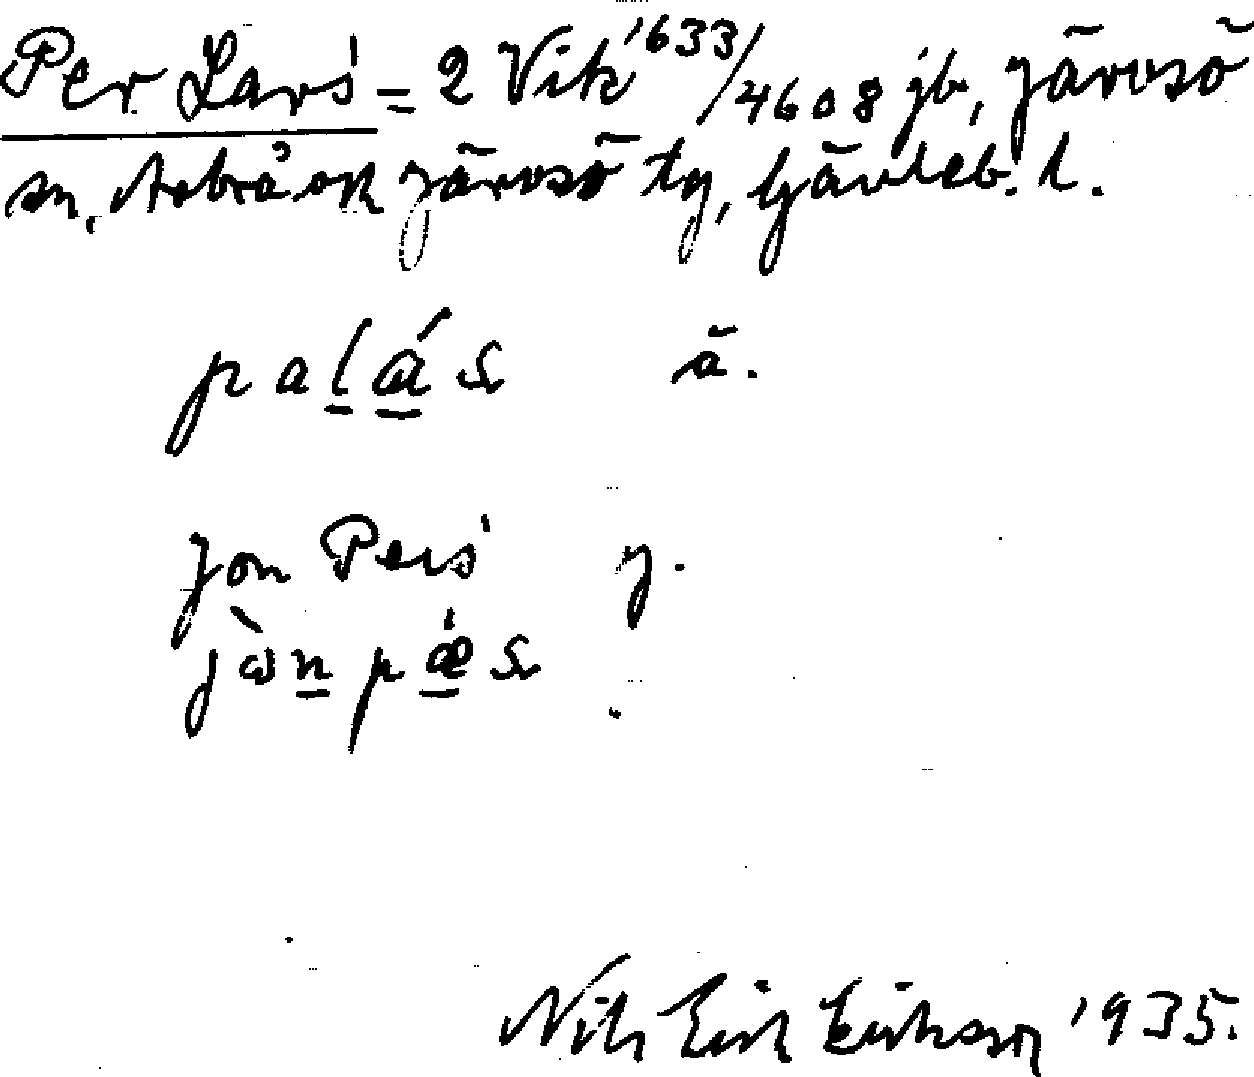 Per Lars' = 2 Vik 1633/4608 jb, Järvsö
sn, Arbrå ok Järvsö tg, Gävleb. l.
palǽs ä.
Jon Pers' y.
jòn pǽs
Nils Erik Eriksson 1935.